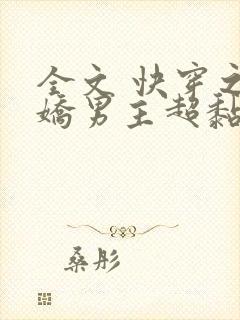 全文 快穿之
嬌男主超黏
桑彤